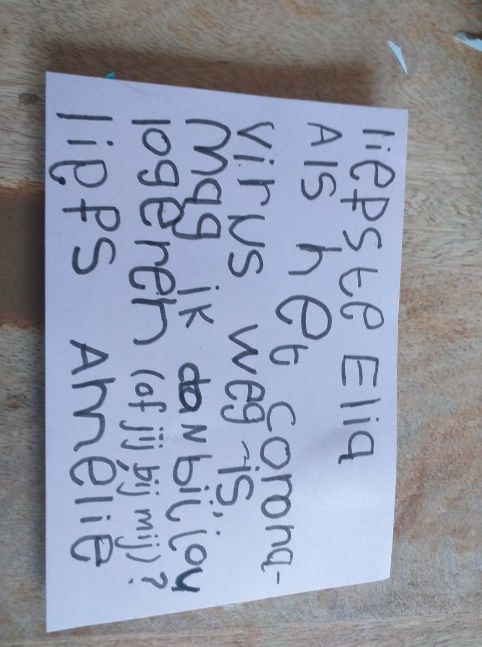 liepste Elia
Als het corona-
virus weg is,
mag ik dan bij jou
logeren (of jij bij mij)?
liefs Amelie